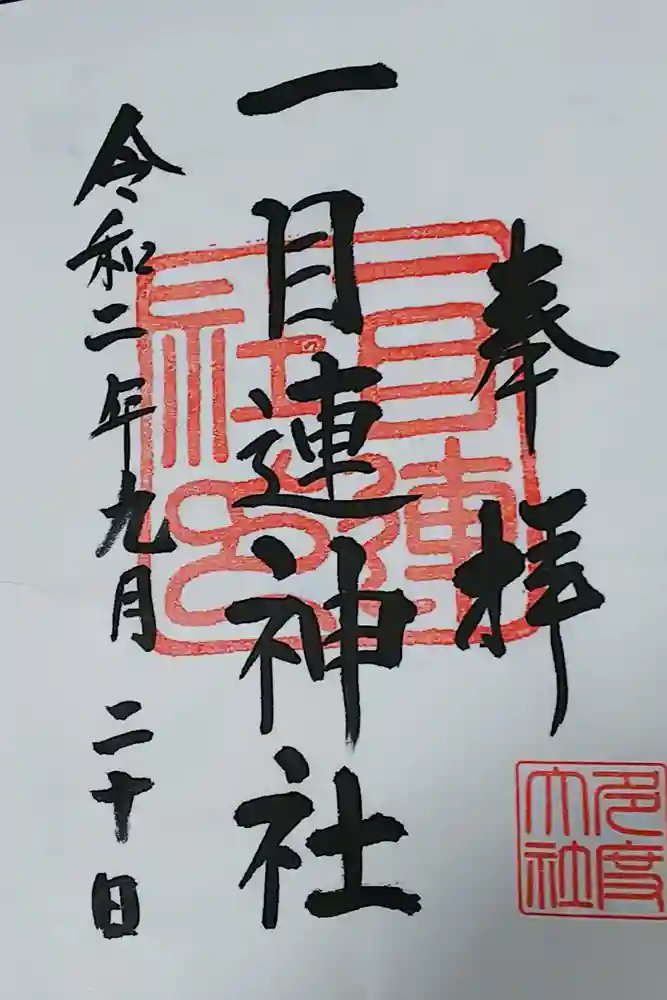 奉拝
一目連神社
令和二年九月二十日
多度大社